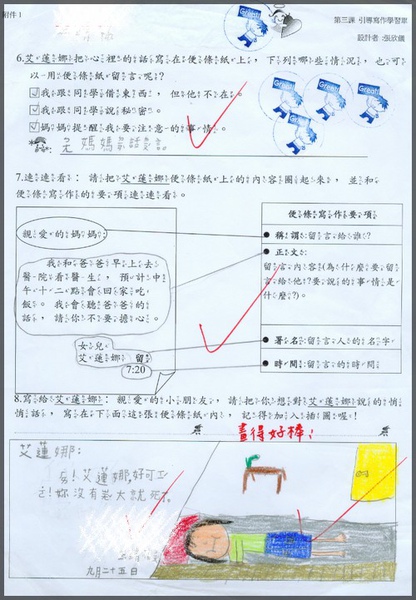 附件1
第三課 引導寫作學習單
設計者:張欣儀
Great!
Great!
Great!
Great!
6.艾蓮娜把心裡的話寫在便條紙上,下列哪些情況,也可
以用便條紙留言呢?
我跟同學借東西,但他不在。
我跟同學說秘密。
媽媽提醒我要注意的事情。
7.連連看:請把艾蓮娜便條紙上的內容圈起來,並和
便條寫作的要項連連看。
親愛的媽媽:
我和爸爸早上去
醫院看醫生,預計中
午十二點會回家吃
飯。我會聽爸爸的
話,請你不要擔心。
女兒
艾蓮娜 留
7:20
便條寫作的要項
● 稱謂:留言給誰?
● 正文:
留言內容(為什麼要留
言給他?要說的事情是
什麼?)。
● 署名:留言人的名字
● 時間:留言的時間
8.寫給艾蓮娜:親愛的小朋友,請把你想對艾蓮娜說的悄
悄話,寫在下面這張便條紙內,記得加入插圖喔!
畫得好棒!
艾蓮娜:
艾蓮娜,好可
妳沒有
九月二十五日